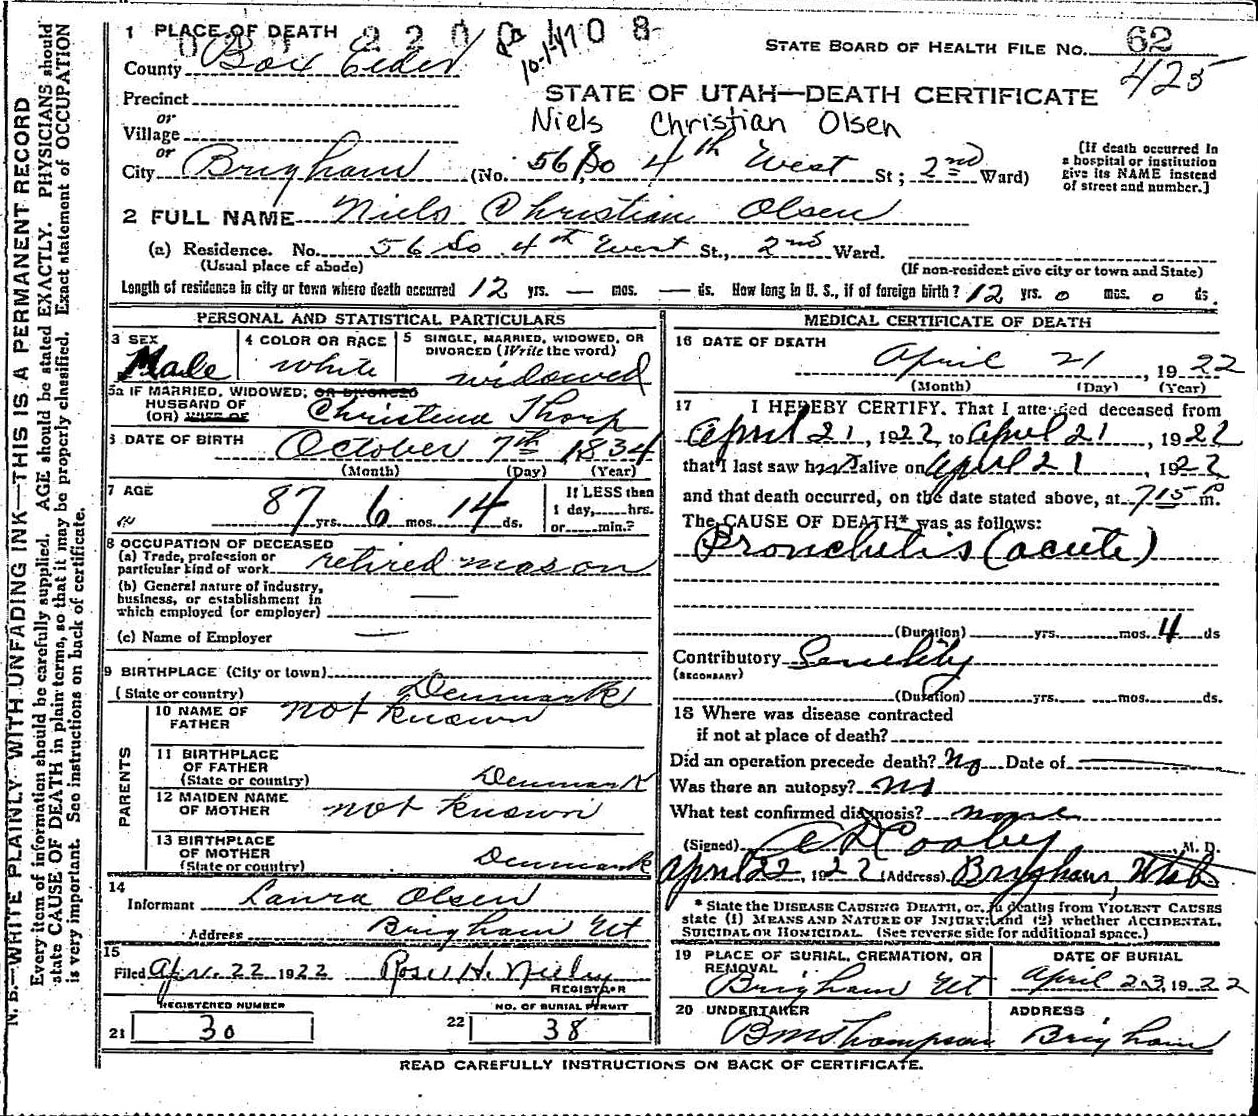 1 PLACE OF DEATH
County Box Elder
10-1-47
STATE BOARD OF HEALTH FILE NO. 62
425
Precinct
or
Village
or
City Brigham (No. 56 So 4th West St; 2nd Ward)
STATE OF UTAH—DEATH CERTIFICATE
Niels Christian Olsen
[If death occurred in
a hospital or institution
give its NAME instead
of street and number.]
2 FULL NAME Niels Christian Olsen
(a) Residence. No. 56 So 4th West St., 2nd Ward.
(Usual place of abode) (If non-resident give city or town and State)
Length of residence in city or town where death occurred 12 yrs. — mos. — ds. How long in U. S., if of foreign birth? 12 yrs. 0 mos. 0 ds.
PERSONAL AND STATISTICAL PARTICULARS
3 SEX
Male
4 COLOR OR RACE
white
5 SINGLE, MARRIED, WIDOWED, OR
DIVORCED (Write the word)
widowed
5a IF MARRIED, WIDOWED; OR DIVORCED
HUSBAND OF
(OR) WIFE OF Christena Thorp
6 DATE OF BIRTH October 7th 1834
(Month) (Day) (Year)
7 AGE
87 yrs. 6 mos. 14 ds.
If LESS then
1 day,......hrs.
or......min.?
8 OCCUPATION OF DECEASED
(a) Trade, profession or
particular kind of work retired mason
(b) General nature of industry,
business, or establishment in
which employed (or employer) —
(c) Name of Employer —
9 BIRTHPLACE (City or town)
(State or country) Denmark
PARENTS
10 NAME OF
FATHER not known
11 BIRTHPLACE
OF FATHER
(State or country) Denmark
12 MAIDEN NAME
OF MOTHER not known
13 BIRTHPLACE
OF MOTHER
(State or country) Denmark
14
Informant Laura Olsen
Address Brigham Ut
15
Filed Apr. 22 1922
REGISTRAR
REGISTERED NUMBER
21 30
NO. OF BURIAL PERMIT
22 38
MEDICAL CERTIFICATE OF DEATH
16 DATE OF DEATH
April 21, 1922
(Month) (Day) (Year)
17 I HEREBY CERTIFY. That I attended deceased from
April 21, 1922, to April 21, 1922
that I last saw h alive on April 21, 1922
and that death occurred, on the date stated above, at 715 P m.
The CAUSE OF DEATH* was as follows:
Bronchitis (acute)
(Duration) yrs. mos. 4 ds
Contributory Senility
(SECONDARY)
(Duration) yrs. mos. ds.
18 Where was disease contracted
if not at place of death?
Did an operation precede death? No Date of
Was there an autopsy? no
What test confirmed diagnosis? none
(Signed) A D Cooley, M. D.
April 22, 1922 (Address) Brigham, Utah
* State the DISEASE CAUSING DEATH, or, in deaths from VIOLENT CAUSES
state (1) MEANS AND NATURE OF INJURY; and (2) whether ACCIDENTAL,
SUICIDAL OR HOMICIDAL. (See reverse side for additional space.)
19 PLACE OF BURIAL, CREMATION, OR
REMOVAL
Brigham Ut
DATE OF BURIAL
April 23, 1922
20 UNDERTAKER
B M Thompson
ADDRESS
Brigham
READ CAREFULLY INSTRUCTIONS ON BACK OF CERTIFICATE.
N. B.—WRITE PLAINLY WITH UNFADING INK—THIS IS A PERMANENT RECORD
Every item of information should be carefully supplied. AGE should be stated EXACTLY. PHYSICIANS should
state CAUSE OF DEATH in plain terms, so that it may be properly classified. Exact statement of OCCUPATION
is very important. See instructions on back of certificate.